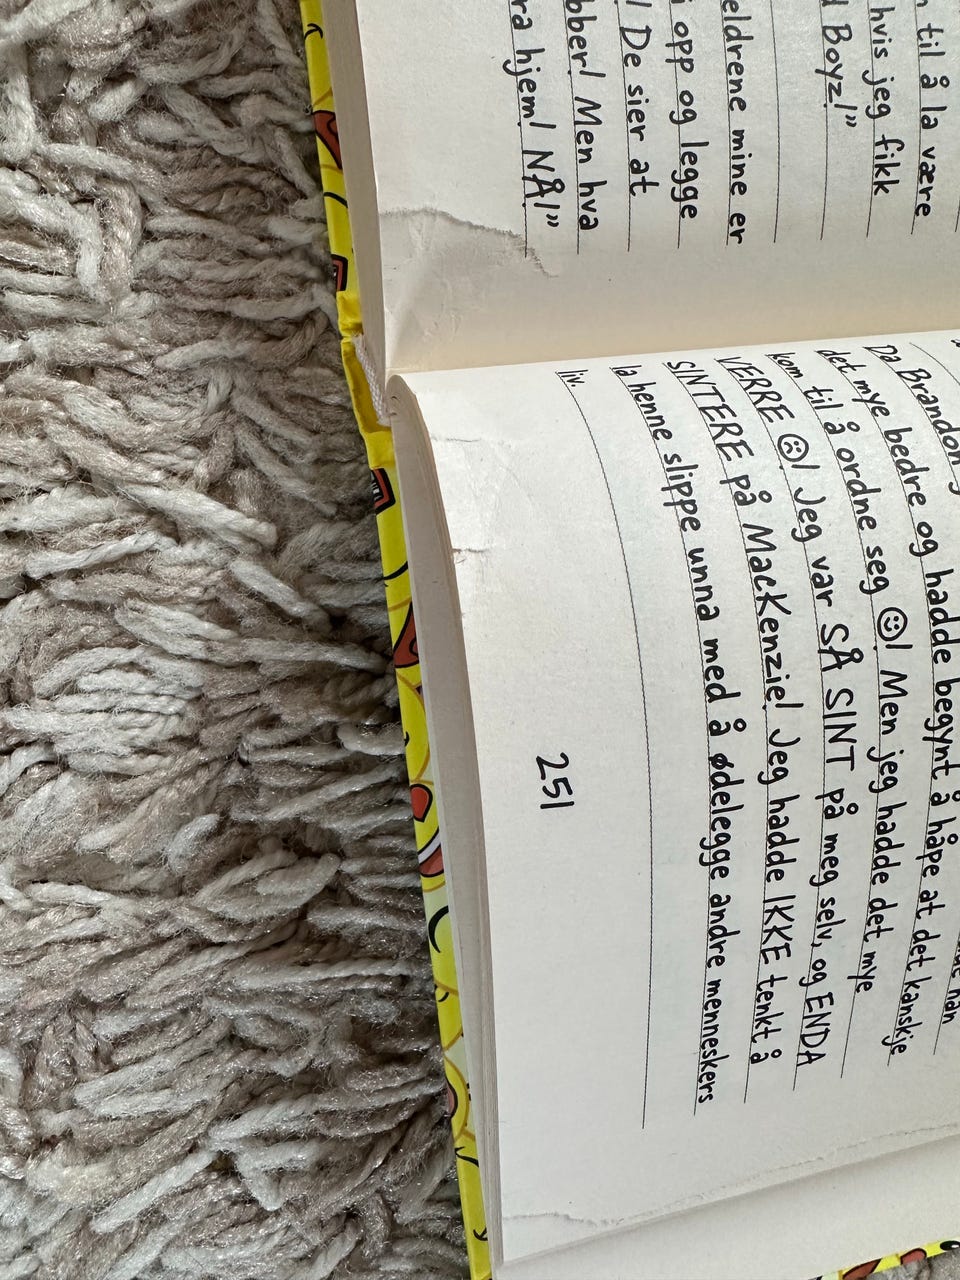 til å la være
hvis jeg fikk
Boyz!”
eldrene mine er
opp og legge
! De sier at
bber! Men hva
ra hjem! NÅ!”
Da Brandon
det mye bedre og hadde begynt å håpe at det kanskje
kom til å ordne seg ☺! Men jeg hadde det mye
VERRE ☹! Jeg var SÅ SINT på meg selv, og ENDA
SINTERE på MacKenzie! Jeg hadde IKKE tenkt å
la henne slippe unna med å ødelegge andre menneskers
liv.
251